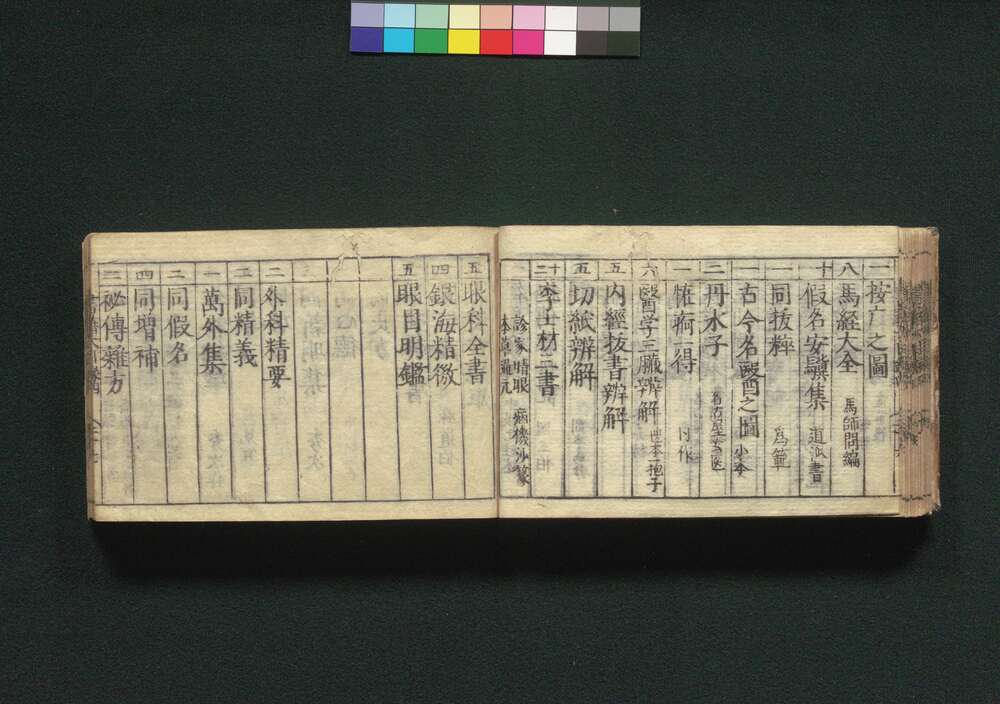 一 按亡之圖
八 馬経大全 馬師問編
十 假名安驥集 道派書
一 同抜粹 為範
一 古今名醫之圖 小本
二 丹水子
一 得
六 醫学三臓辨解 世本一抱子
五 内經抜書辨解
五 切紙辨解
十二 李士材三書
診家 眼 病機沙篆
五 眼科全書
四 銀海精微
五 眼目明鑑
二 外科精要
二 同精義
一 萬外集
二 同假名
四 同増補
三 秘傳雜方